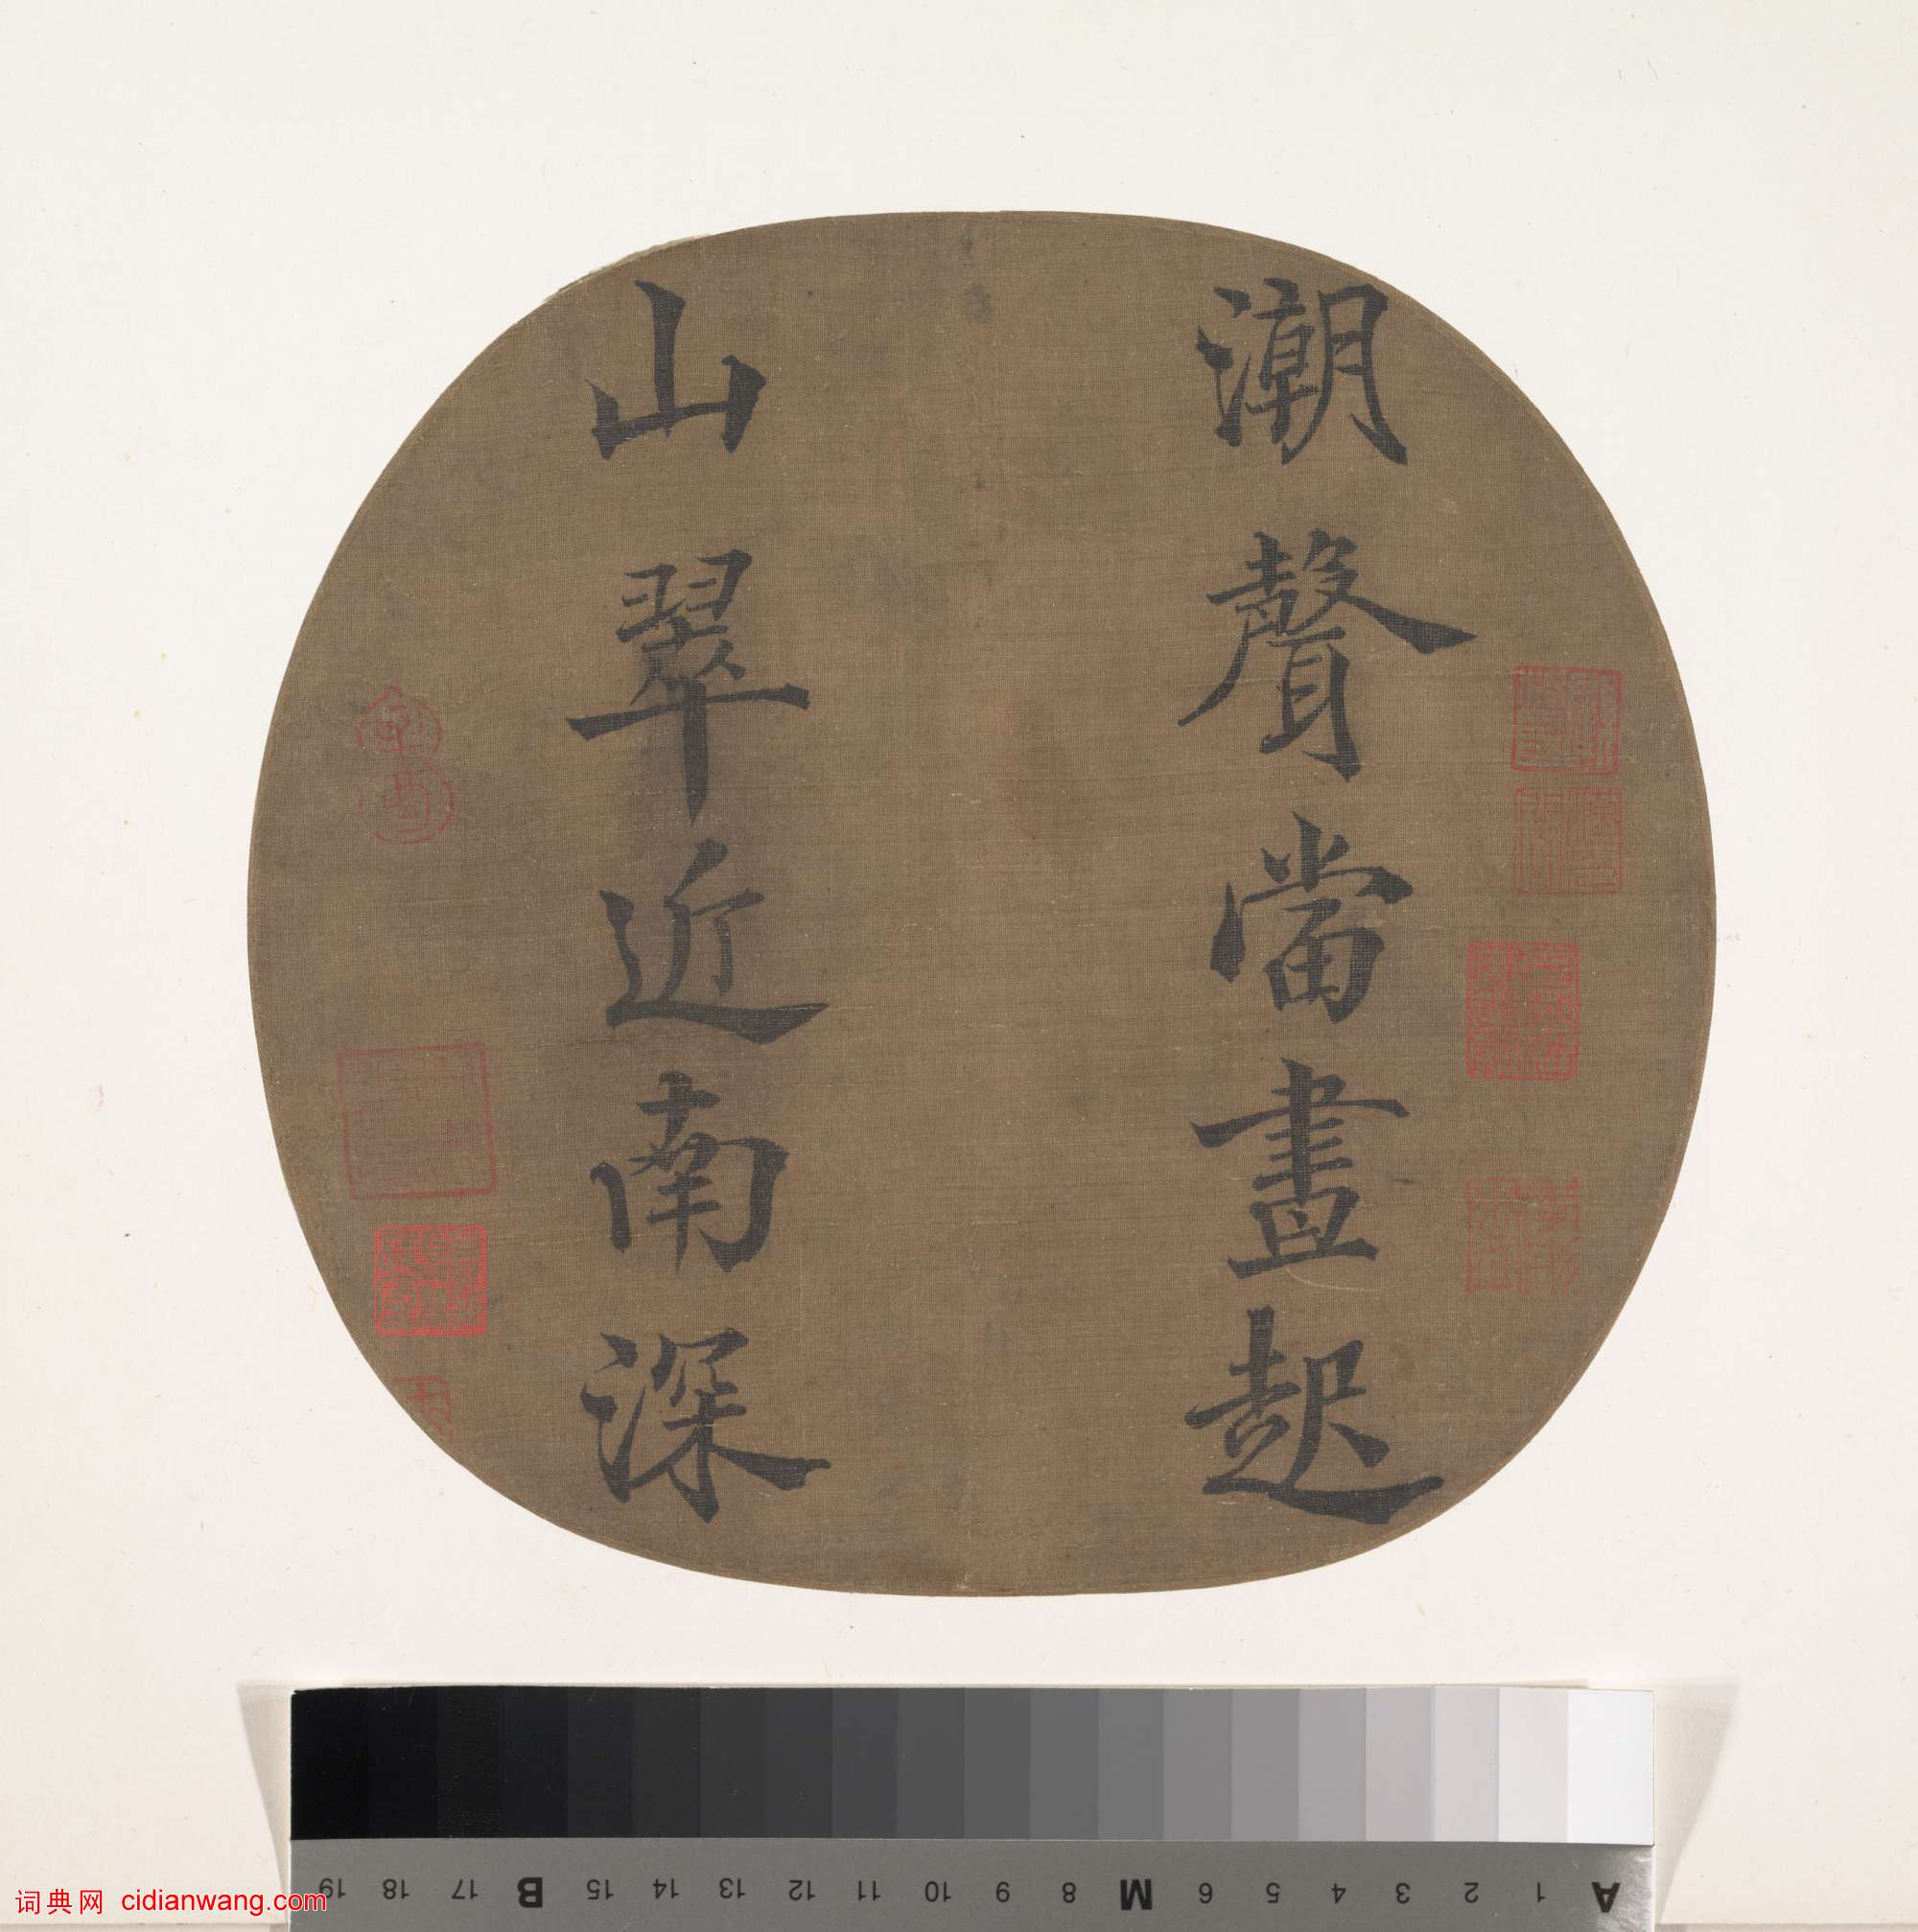 潮聲當晝起
山翠近南深
19 18 17 B 15 14 13 12 11 10 9 8 M 6 5 4 3 2 1 A
词典网 cidianwang.com